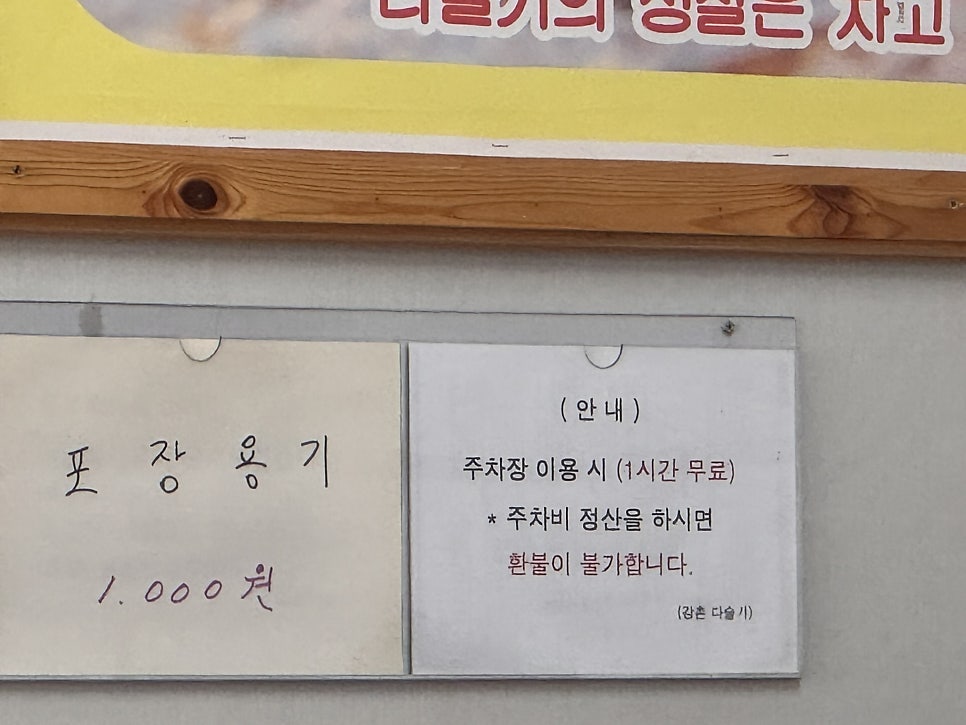 다슬기의 성질은 차고
포장용기
1.000원
( 안 내 )
주차장 이용 시 (1시간 무료)
* 주차비 정산을 하시면
환불이 불가합니다.
(강촌 다슬기)